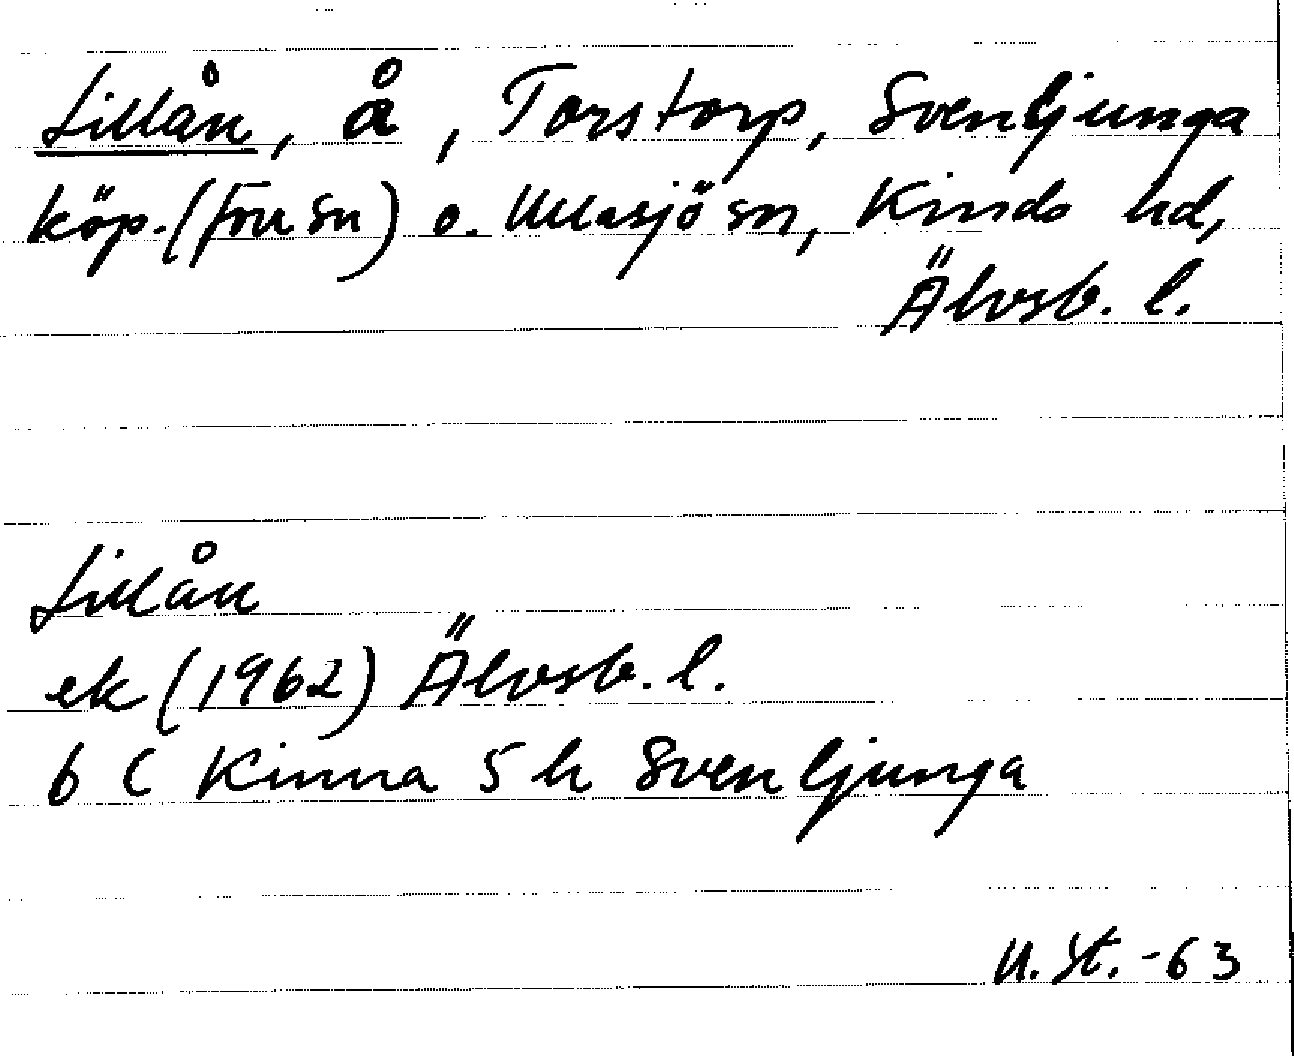 Lillån, å, Torstorp, Svenljunga
köp. (förr sn) o. Ullasjö sn, Kinds hd,
Älvsb. l.
Lillån
ek (1962) Älvsb. l.
6 C Kinna 5 h Svenljunga
U. St. -63